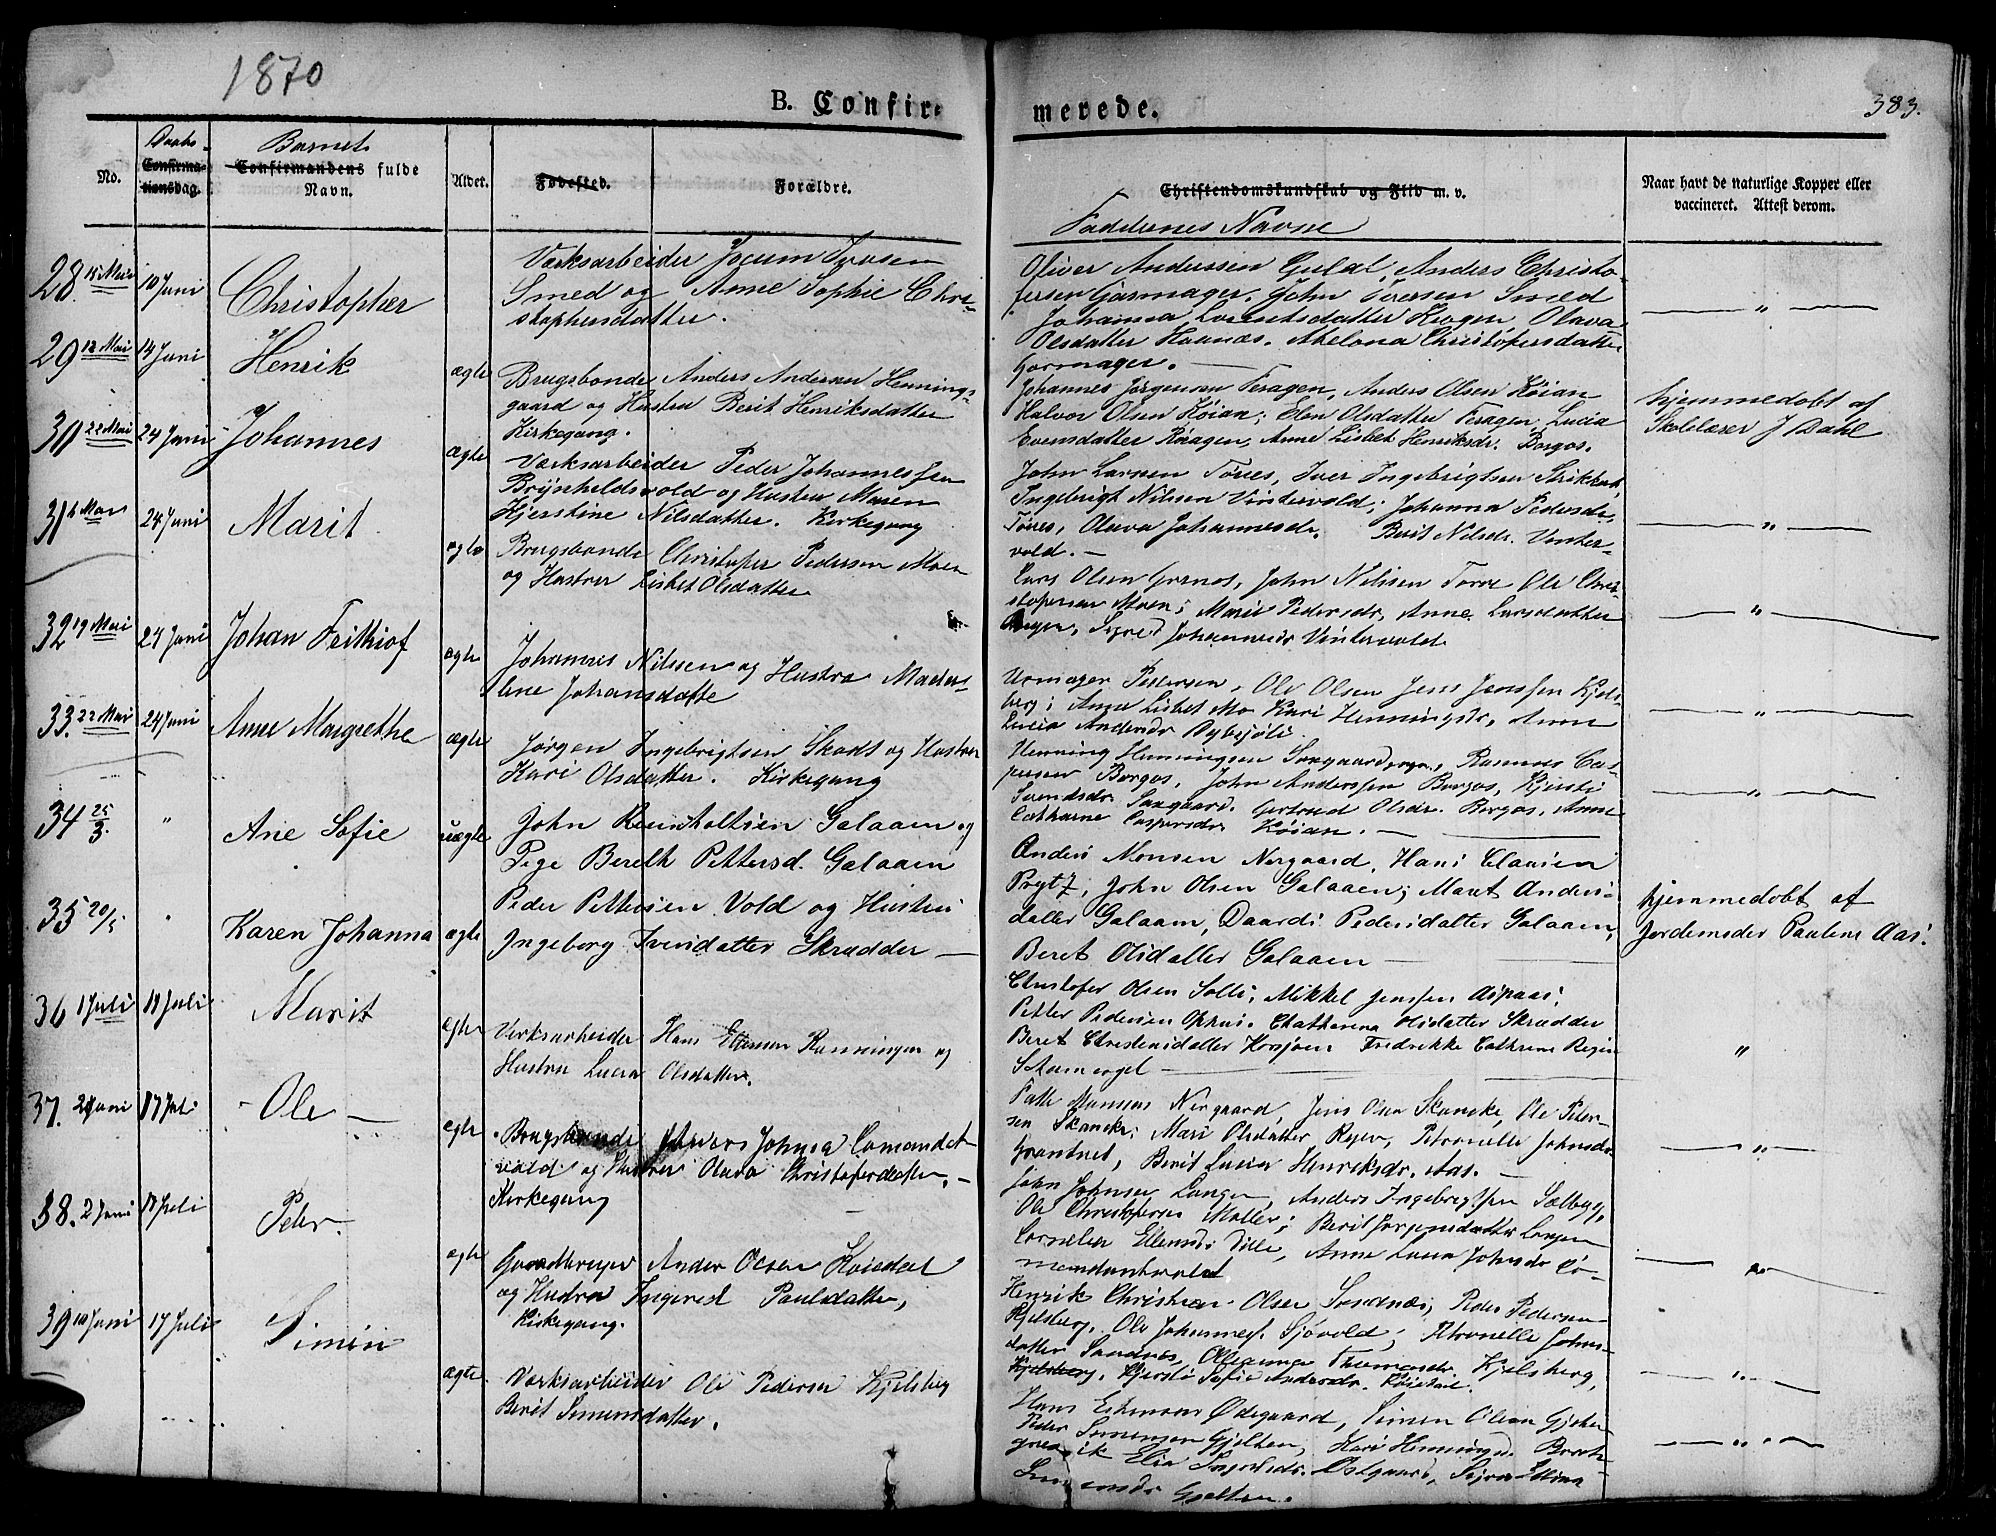 1870
B. Confirmerede.
383.
No.
Daabs-
Confirmationsdag.
Barnets
Confirmandens fulde
Navn.
Aldet.
Fødested.
Forældre.
Christendomskundskab og Flid m. v.
Faddernes Navne
Naar havt de naturlige Kopper eller
vaccineret. Attest derom.
28 15 Mai
10 Juni
Christopher
Værksarbeider Jocum Iversen
Smed og Anne Sophie Chri-
stophersdatter.
Oliver Anderssen Gulal, Anders Christo-
fersen Garmager, John Iversen Smed
Johanna Lorentsdatter Krogen, Olava
Olsdatter Haanæs, Abelona Christofersdatter
Garmager.
"
29 12 Mai
14 Juni
Henrik
ægte
Brugsbonde Anders Andersen Hennings-
gaard og Hustru Berit Henriksdatter
Kirkegang.
Johannes Jørgensen Feragen, Anders Olsen Køian
Halvor Olsen Køian; Elen Olsdatter Feragen, Lucia
Evensdatter Feragen, Anne Lisbet Henriksdr. Borgos.
hjemmedøbt af
Skolelærer J Dahl
30 22 Mai
24 Juni
Johannes
ægte
Værksarbeider Peder Johannessen
Brynhildsvold og Hustru Maren
Kjerstine Nilsdatter. Kirkegang
John Larsen Tørres, Iver Ingebrigtsen
Ingebrigt Nilsen Vintervold; Johanna Pedersdr.
Tørres, Olava Johannesdr. Berit Nilsdr. Vinter-
vold.
"
31
24 Juni
Marit
ægte
Brugsbonde Christofer Pedersen Moen
og Hustru Lisbet Olsdatter
Lars Olsen Grenos, John Nilssen Ole Chri-
stofersen Moen; Marie Pedersdr, Anne Larsdatter
Sigrid Johannesdr Vintervold
"
32 19 Mai
24 Juni
Johan Frithiof
ægte
Johannes Nilssen og Hustru
Johansdatte
Urmager Pedersen, Ole Olsen Jens Jenssen Kjels-
berg; Anne Lisbet Mo Kari Henningsdr, Anne
Lucia Andersdr
"
33. 22 Mai
24 Juni
Anne Margrethe
ægte
Jørgen Ingebrigtsen Skott og Hustru
Kari Olsdatter. Kirkegang
Henning Henningsen Rasmus Cas-
persen Borgos, John Anderssen Borgos, Kjersti
Svendsdr. Gertrud Olsdr. Borgos, Anne
Catharine Caspersdr. Køian.
"
34 25/3.
"
Ane Sofie
uægte
John Reinholtsen Galaaen og
Pige Bereth Pettersd. Galaaen
Anders Monsen Nergaard, Hans Claasen
Prytz, John Olsen Galaaen; Maret Anders-
datter Galaaen, Daardi Pedersdatter Galaaen,
Beret Olsdatter Galaaen
35 20/5
"
Karen Johanna
ægte
Peder Pettersen Vold og Hustru
Ingeborg Iversdatter Skrædder
Christofer Olsen Solli, Mikkel Jenssen Aspaas;
Petter Pedersen Ophus. Chatharina Olsdatter Skrædder
Beret Christensdatter Korsjøen Fredrikke Cathrine Regine
Stamvogel
hjemmedøbt af
Jordemoder Pauline Aas.
36 1 Juli
Marit
ægte
Verksarbeider Hans Ronningen og
Hustru Lucia Olsdatter.
Monsen Nergaard, Jens Olsen Skancke, Ole Peter-
sen Skancke; Mari Olsdatter Petronelle Johnsdr
Berit Lucia Henriksdr. Aas.
"
37. 2 Juni
17 Juli
Ole
ægte
Brugsbonde Johnsen Comandot-
vold og Hustru Olava Christofersdatter.
Kirkegang
John Johnsen Langen, Anders Ingebrigtsen
Ole Christofersen Moller; Berit Jørgensdatter Langen
Cornelia Ellensdr Anne Lucia Johnsdr Co-
mandantvold
"
38. 2 Juni
17 Juli
Peter
ægte
Anders Olsen
og Hustru Ingered Paulsdatter,
Kirkegang.
Henrik Christian Olsen Sandnæs, Peder Pedersen
Kjelsberg, Ole Johannes. Sjøvold; Petronelle Johns-
datter Sandnæs, Thomasdr. Kjelsberg,
Kjelsberg, Kjersti Sofie Andersdr.
"
39 10 Juni
17 Juli
Simen
ægte.
Værksarbeider Ole Pedersen Kjelsberg
Berit Simensdatter.
Hans Ødegaard, Simen Olsen
Peder Simensen Gjelten, Kari
Østgaard,
Gjelten.
"